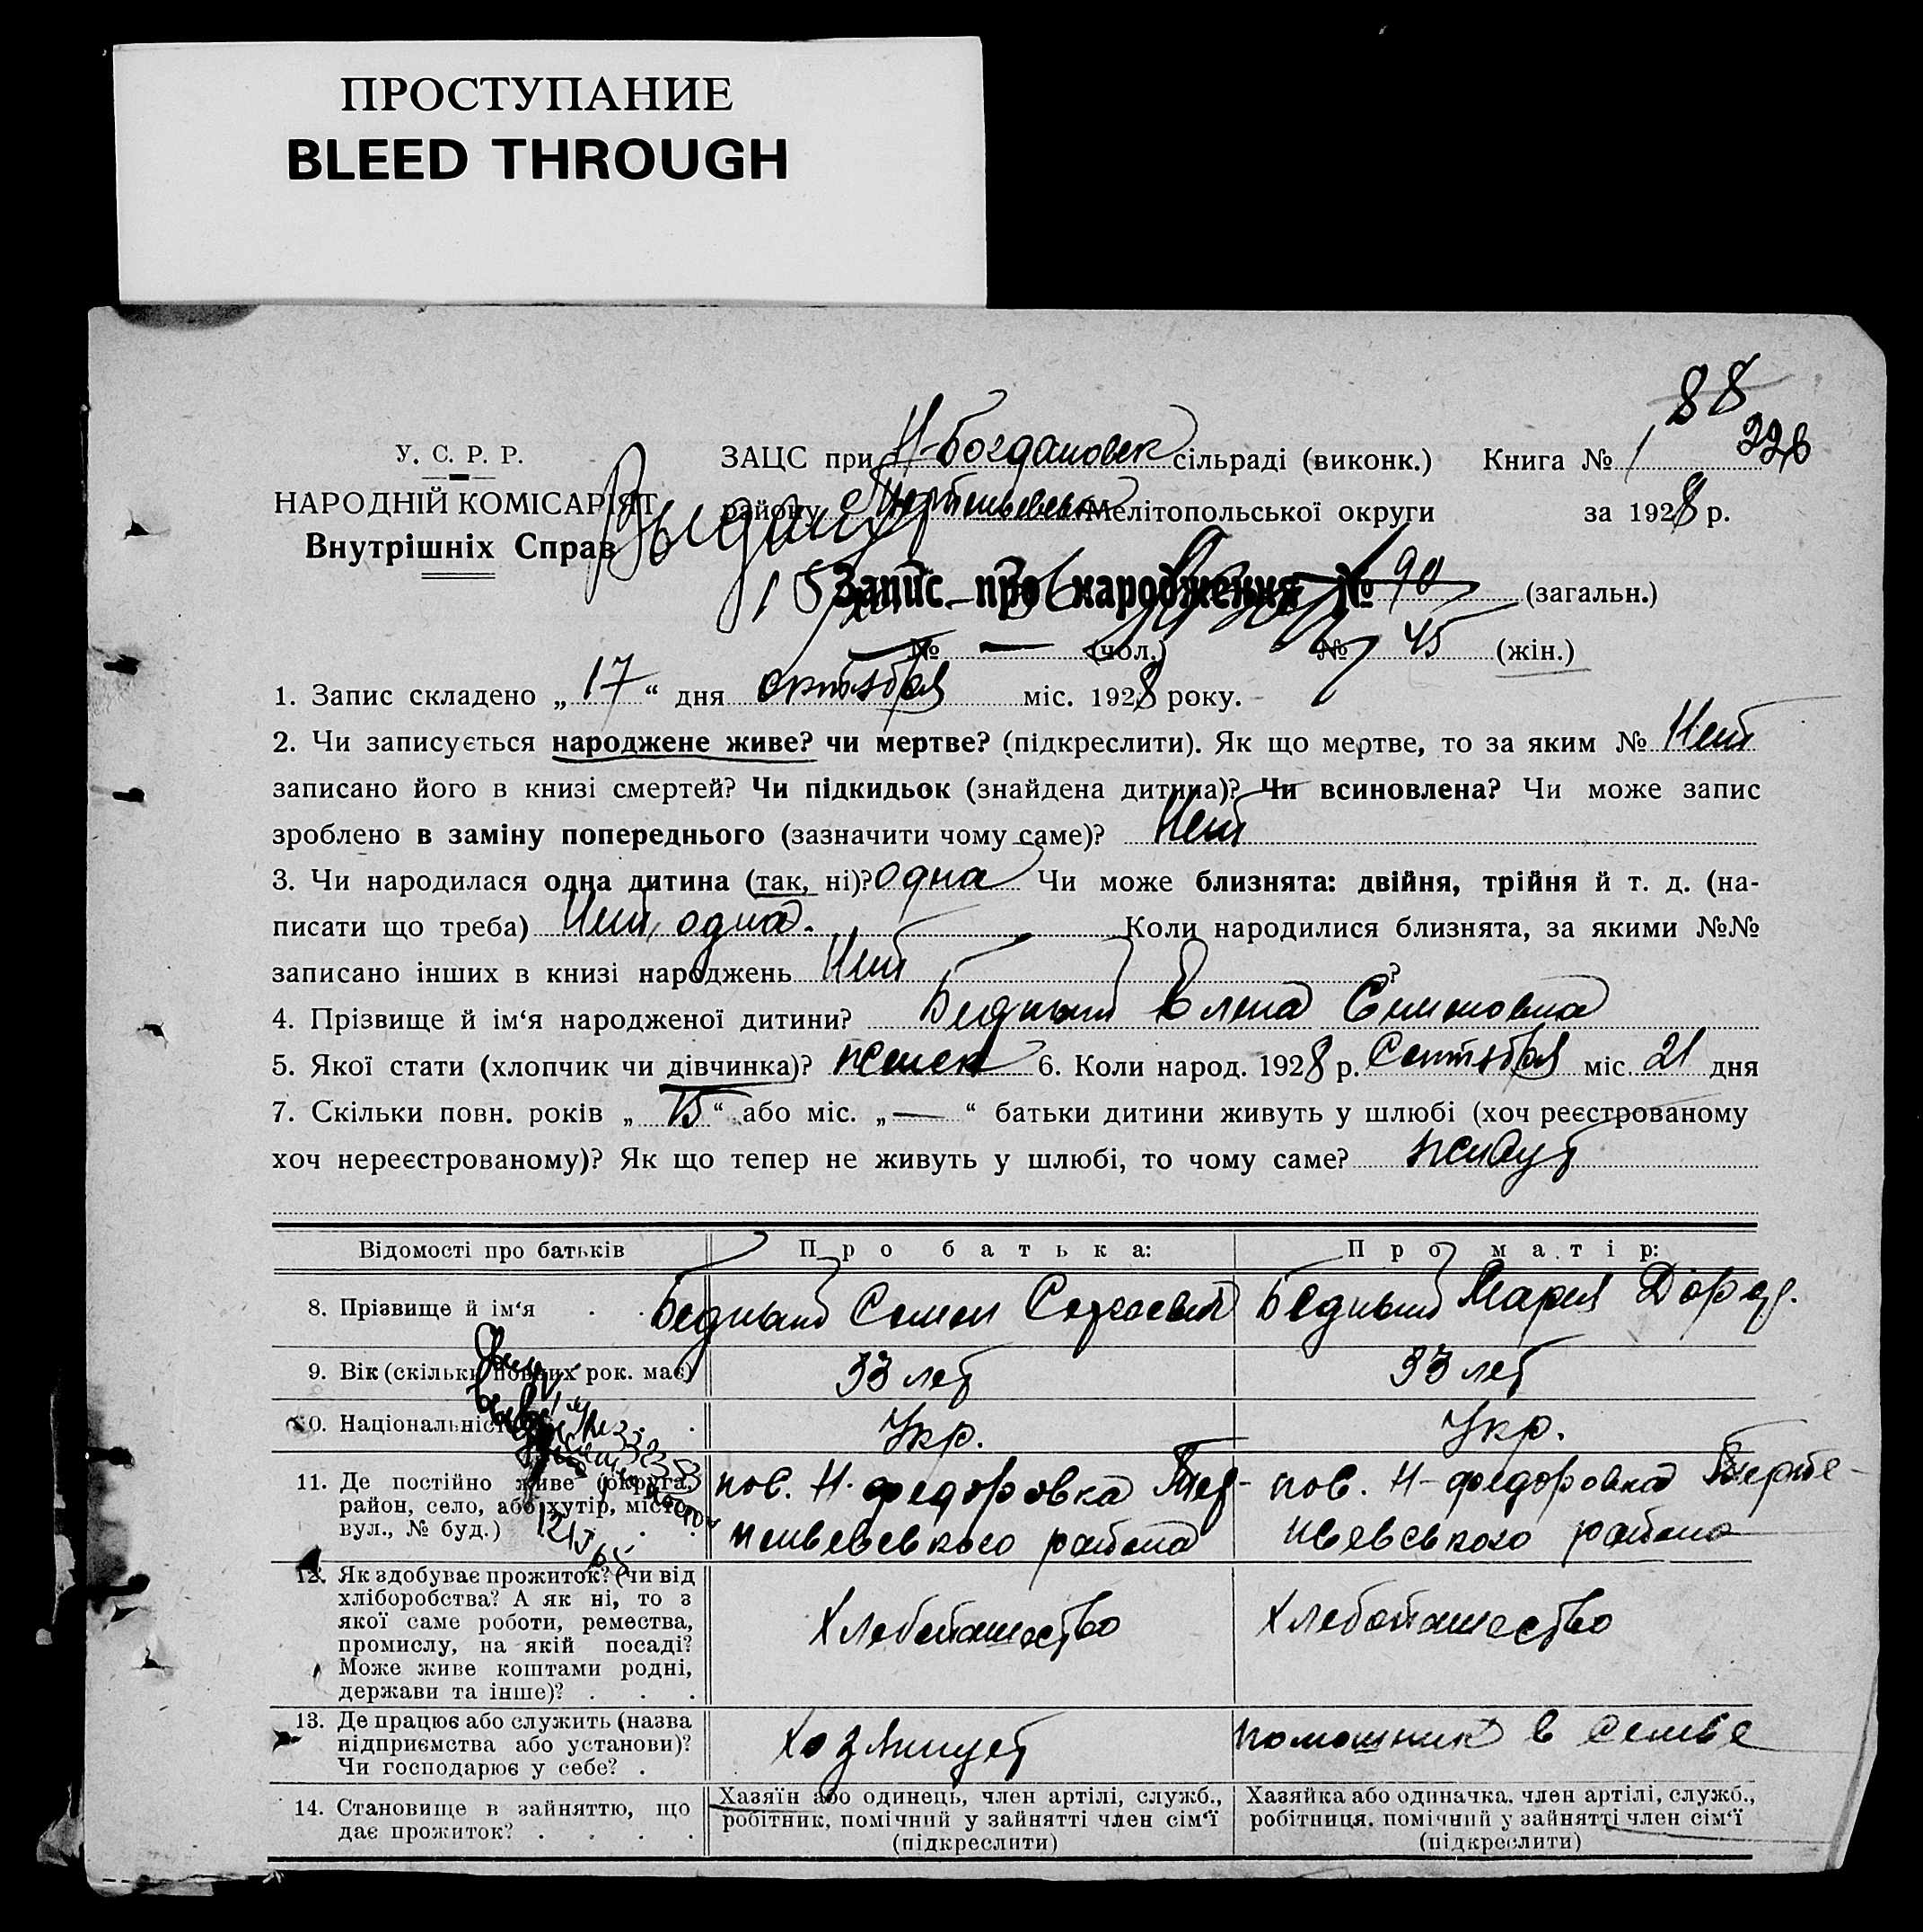 ПРОСТУПАНИЕ
BLEED THROUGH
88
226
У. С. Р. Р.
НАРОДНІЙ КОМІСАРІЯТ
Внутрішніх Справ
ЗАЦС при Н-Богдановск сільраді (виконк.) Книга № 1
району Мелітопольської округи за 1928 р.
Запис про народження № 90 (загальн.)
№ — (чол.) № 45 (жін.)
1. Запис складено „ 17 “ дня октября міс. 1928 року.
2. Чи записується народжене живе? чи мертве? (підкреслити). Як що мертве, то за яким № Нет
записано його в книзі смертей? Чи підкидьок (знайдена дитина)? Чи всиновлена? Чи може запис
зроблено в заміну попереднього (зазначити чому саме)? Нет
3. Чи народилася одна дитина (так, ні)? одна Чи може близнята: двійня, трійня й т. д. (на-
писати що треба) Нет, одна. Коли народилися близнята, за якими №№
записано інших в книзі народжень Нет ?
4. Прізвище й ім‘я народженої дитини? Бедный Елена Семеновна
5. Якої стати (хлопчик чи дівчинка)? женск 6. Коли народ. 1928 р. Сентября міс. 21 дня
7. Скільки повн. років „ 15 “ або міс. „ — “ батьки дитини живуть у шлюбі (хоч реєстрованому
хоч нереєстрованому)? Як що тепер не живуть у шлюбі, то чому саме? живут
Відомості про батьків Про батька: Про матір:
8. Прізвище й ім‘я . . Бедный Семен Бедный Мария
9. Вік (скільки повних рок. має) 33 лет 33 лет
10. Національність . Укр. Укр.
11. Де постійно живе (округа, район, село, або хутір, місто, вул., № буд.) . .
пос. Н-федоровка
района
пос. Н-федоровка
района
12. Як здобуває прожиток? (чи від
хліборобства? А як ні, то з
якої саме роботи, ремества,
промислу, на якій посаді?
Може живе коштами родні,
держави та інше)? . . .
Хлебопашество Хлебопашество
13. Де працює або служить (назва
підприємства або установи)?
Чи господарює у себе? .
Хозяинует помошник в семье
14. Становище в зайняттю, що
дає прожиток? . . . .
Хазяїн або одинець, член артілі, служб.,
робітник, помічний у зайнятті член сім‘ї
(підкреслити)
Хазяйка або одиначка. член артілі, служб.,
робітниця, помічний у зайнятті член сім‘ї
(підкреслити)